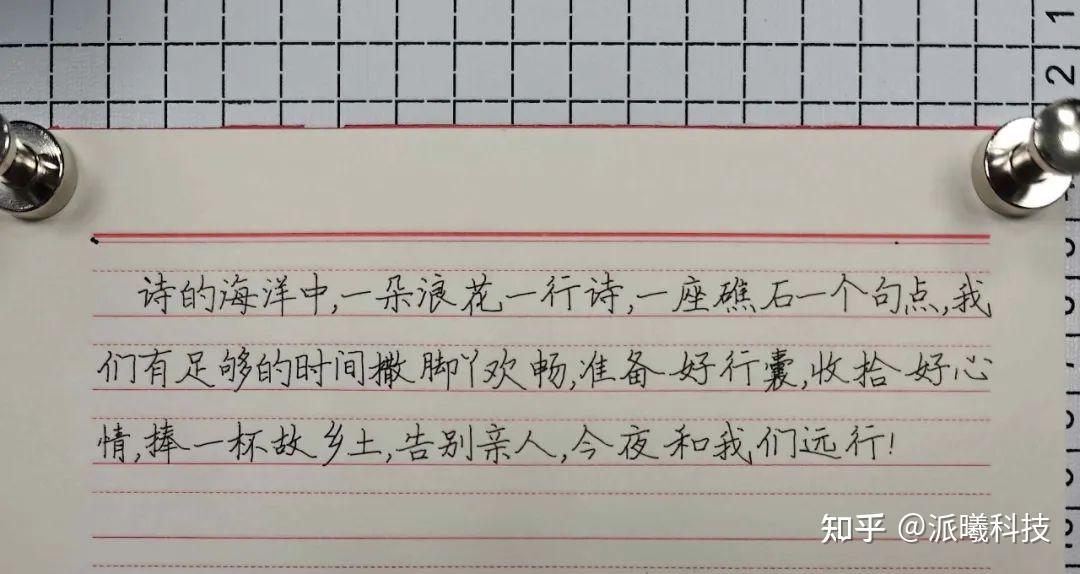 1
2
诗的海洋中,一朵浪花一行诗,一座礁石一个句点,我
们有足够的时间撒脚丫欢畅,准备好行囊,收拾好心
情,捧一杯故乡土,告别亲人,今夜和我们远行!
知乎 @派曦科技